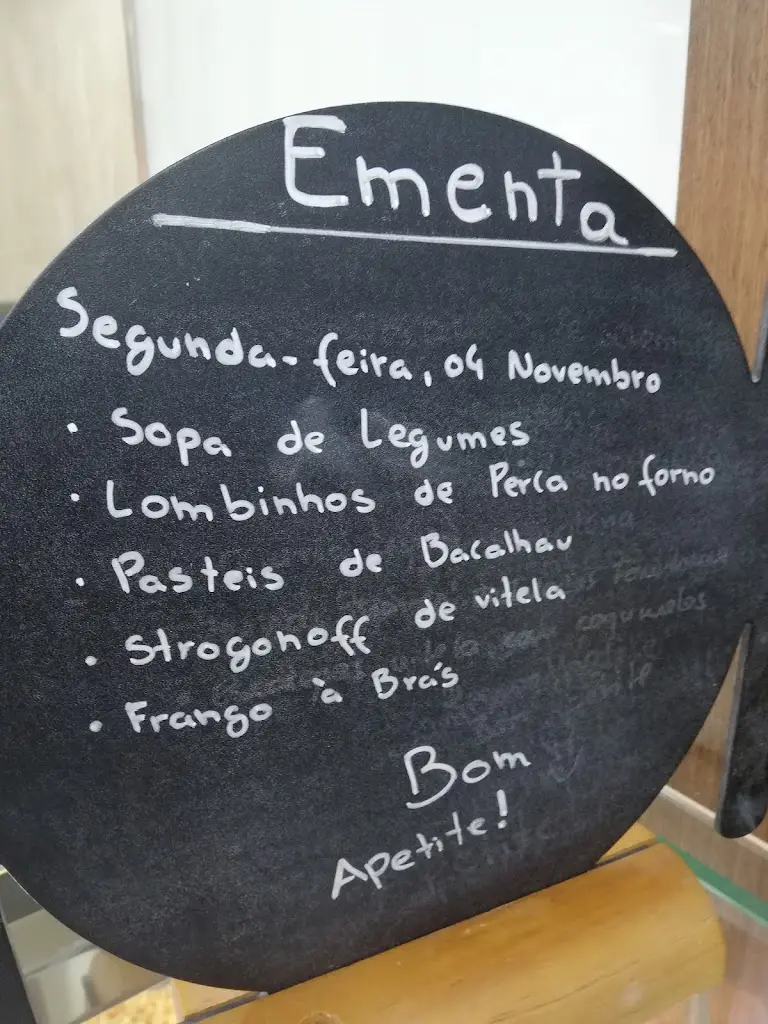 Ementa
Segunda-feira, 04 Novembro
• Sopa de Legumes
• Lombinhos de Perca no forno
• Pasteis de Bacalhau
• Strogonoff de vitela
• Frango à Brás
Bom
Apetite!